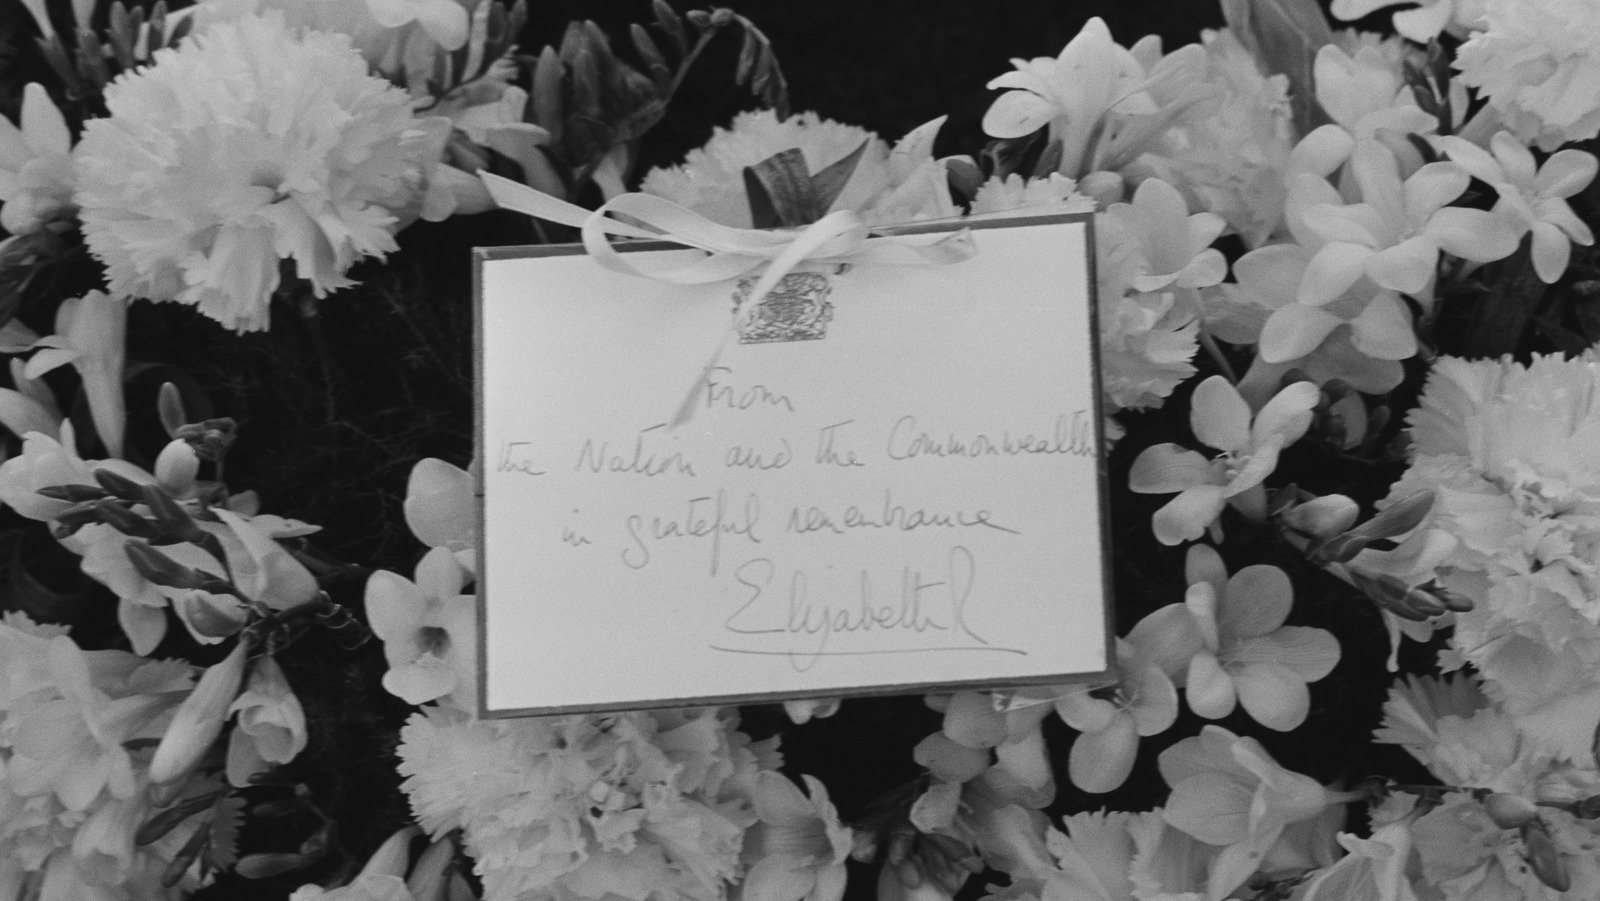 From
the Nation and the Commonwealth
in grateful remembrance
Elizabeth R